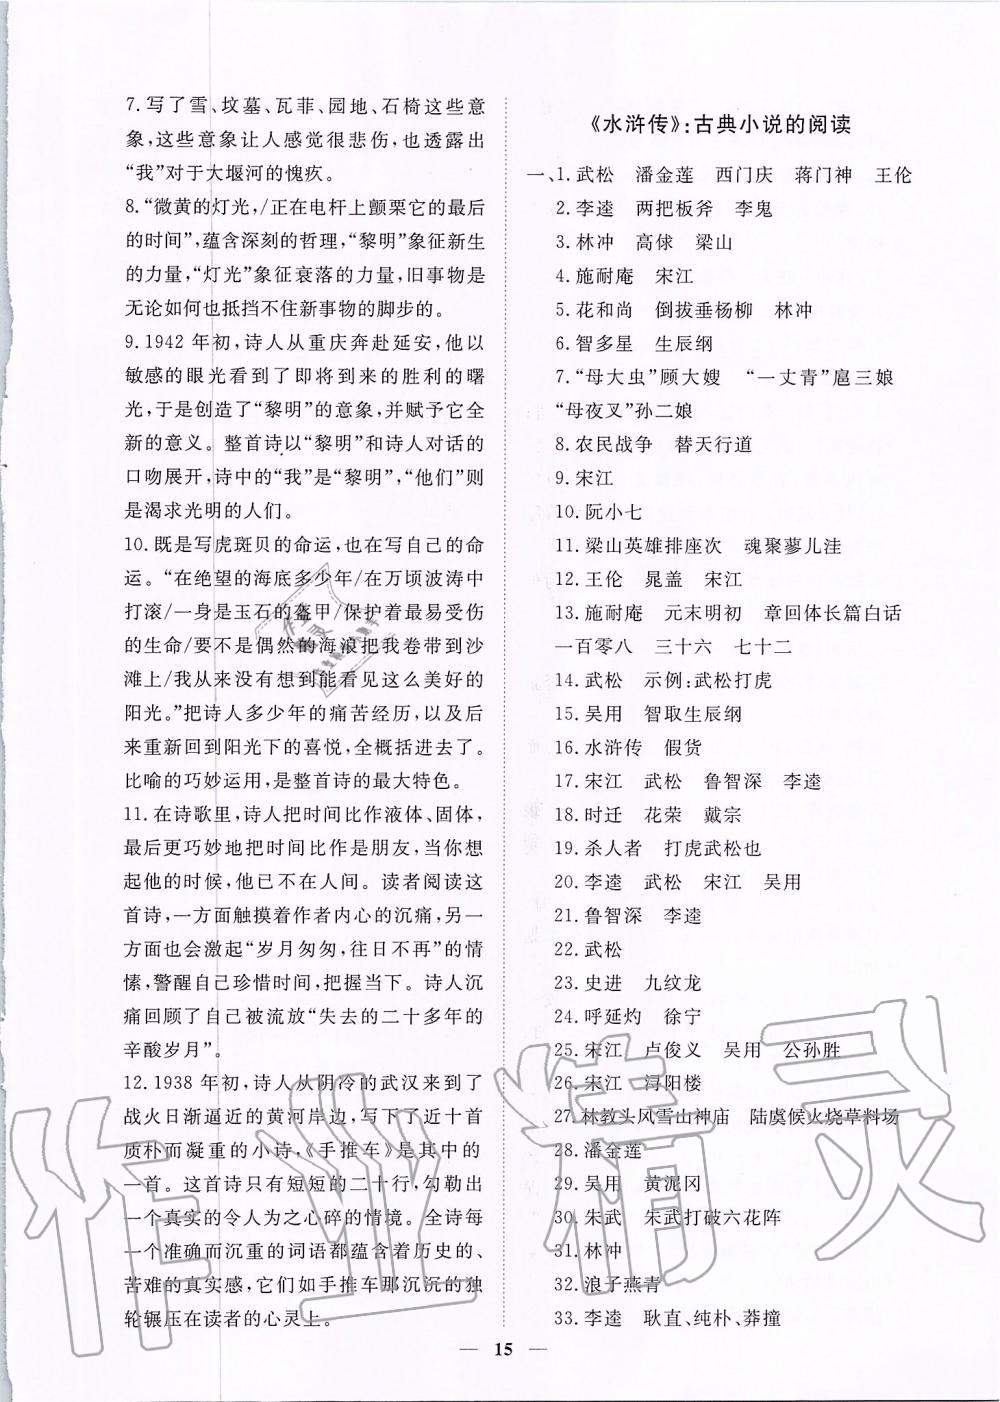 7. 写了雪、坟墓、瓦菲、园地、石椅这些意
象,这些意象让人感觉很悲伤,也透露出
“我”对于大堰河的愧疚。
8. “微黄的灯光,/正在电杆上颤栗它的最后
的时间”,蕴含深刻的哲理,“黎明”象征新生
的力量,“灯光”象征衰落的力量,旧事物是
无论如何也抵挡不住新事物的脚步的。
9. 1942 年初,诗人从重庆奔赴延安,他以
敏感的眼光看到了即将到来的胜利的曙
光,于是创造了“黎明”的意象,并赋予它全
新的意义。整首诗以“黎明”和诗人对话的
口吻展开,诗中的“我”是“黎明”,“他们”则
是渴求光明的人们。
10. 既是写虎斑贝的命运,也在写自己的命
运。“在绝望的海底多少年/在万顷波涛中
打滚/一身是玉石的盔甲/保护着最易受伤
的生命/要不是偶然的海浪把我卷带到沙
滩上/我从来没有想到能看见这么美好的
阳光。”把诗人多少年的痛苦经历,以及后
来重新回到阳光下的喜悦,全概括进去了。
比喻的巧妙运用,是整首诗的最大特色。
11. 在诗歌里,诗人把时间比作液体、固体,
最后更巧妙地把时间比作是朋友,当你想
起他的时候,他已不在人间。读者阅读这
首诗,一方面触摸着作者内心的沉痛,另一
方面也会激起“岁月匆匆,往日不再”的情
愫,警醒自己珍惜时间,把握当下。诗人沉
痛回顾了自己被流放“失去的二十多年的
辛酸岁月”。
12. 1938 年初,诗人从阴冷的武汉来到了
战火日渐逼近的黄河岸边,写下了近十首
质朴而凝重的小诗,《手推车》是其中的
一首。这首诗只有短短的二十行,勾勒出
一个真实的令人为之心碎的情境。全诗每
一个准确而沉重的词语都蕴含着历史的、
苦难的真实感,它们如手推车那沉沉的独
轮辗压在读者的心灵上。
《水浒传》:古典小说的阅读
一、1. 武松 潘金莲 西门庆 蒋门神 王伦
2. 李逵 两把板斧 李鬼
3. 林冲 高俅 梁山
4. 施耐庵 宋江
5. 花和尚 倒拔垂杨柳 林冲
6. 智多星 生辰纲
7. “母大虫”顾大嫂 “一丈青”扈三娘
“母夜叉”孙二娘
8. 农民战争 替天行道
9. 宋江
10. 阮小七
11. 梁山英雄排座次 魂聚蓼儿洼
12. 王伦 晁盖 宋江
13. 施耐庵 元末明初 章回体长篇白话
一百零八 三十六 七十二
14. 武松 示例:武松打虎
15. 吴用 智取生辰纲
16. 水浒传 假货
17. 宋江 武松 鲁智深 李逵
18. 时迁 花荣 戴宗
19. 杀人者 打虎武松也
20. 李逵 武松 宋江 吴用
21. 鲁智深 李逵
22. 武松
23. 史进 九纹龙
24. 呼延灼 徐宁
25. 宋江 卢俊义 吴用 公孙胜
26. 宋江 浔阳楼
27. 林教头风雪山神庙 陆虞候火烧草料场
28. 潘金莲
29. 吴用 黄泥冈
30. 朱武 朱武打破六花阵
31. 林冲
32. 浪子燕青
33. 李逵 耿直、纯朴、莽撞
— 15 —
作业精灵